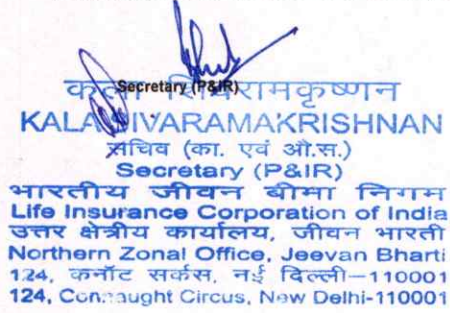 Secretary (P&IR)
कला शिवरामकृष्णन
KALA SIVARAMAKRISHNAN
सचिव (का. एवं औ.स.)
Secretary (P&IR)
भारतीय जीवन बीमा निगम
Life Insurance Corporation of India
उत्तर क्षेत्रीय कार्यालय, जीवन भारती
Northern Zonal Office, Jeevan Bharti
124, कनॉट सर्कस, नई दिल्ली–110001
124, Connaught Circus, New Delhi-110001